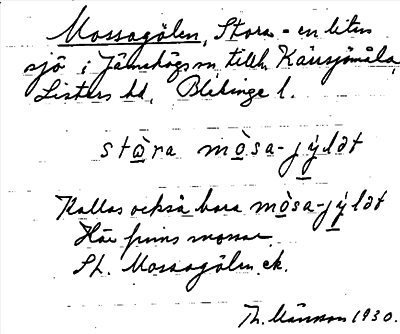 Mossagölen, Stora - en liten
sjö i Jämshögs sn, tillh. Kärrsjömåla,
Listers hd, Blekinge l.
stàra mòsa-jýlət
Kallas också bara mòsa-jýlət
Här finns mossar.
St. Mossagölen ek.
Th. Månsson 1930.